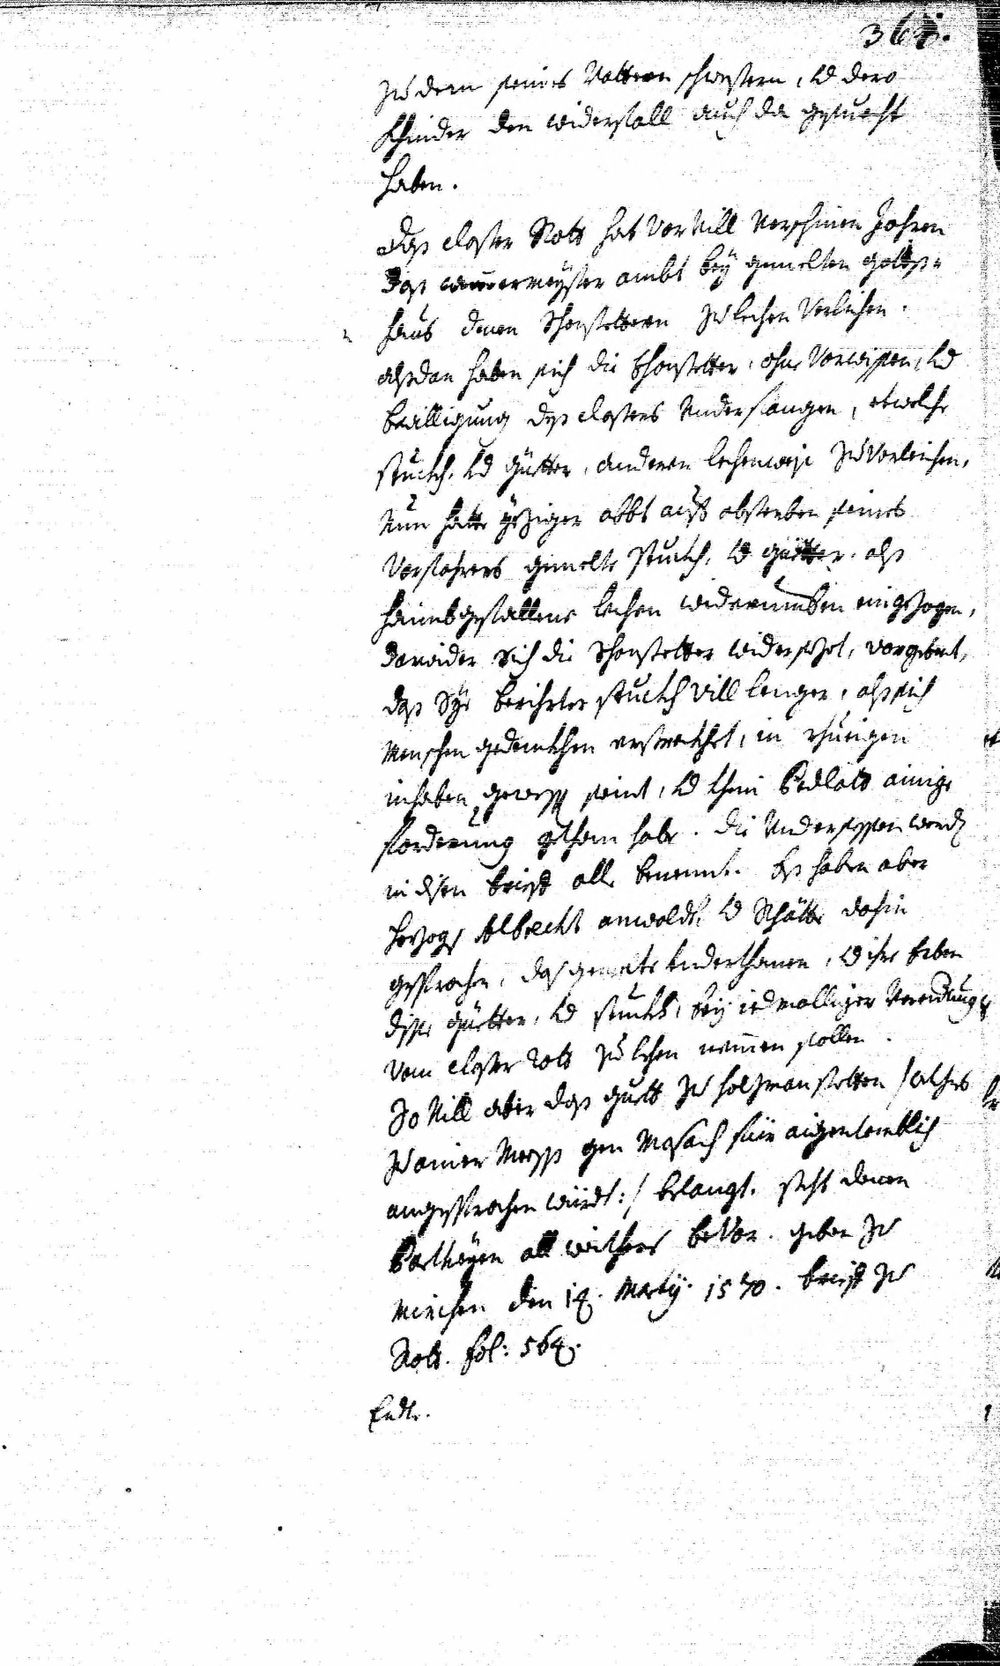 365.
zu dem seines Vattern schwestern, Vnd dero
Khinder den widerfall auch da gemacht
haben.
Daß closter Rott hat vor Vill Verschinen Jahren
daß cam̄ermeyster ambt bey gemelten gottß=
haus denen Thorstettern zu lechen Verlichen.
alßdan haben sich die Thorstetter, ohne Vorwissen, Vnd
bewilligung deß closters Vnderfangen, etwelche
stuckh, Vnd güetter, anderen lechenweiß zu Verleichen,
Nun hatte yeziger abbt auß absterben seines
Vorfahrers gemelte stuckh, Vnd güetter, alß
haimbgefallene lechen widerumben eingezogen,
darwider sich die Thorstetter widersezt, vorgebent,
daß Sye berihrte stuckh Vill lenger, alß sich
Menschen gedenckhen erstreckhet, in rhüeigen
inhaben gewest seint, Vnd khein Prælatt ainige
forderung gethan habe. die Undersessen werden
in disen brieff alle benennt. Es haben aber
Herzogs Albrecht anwäldt, Vnd Räthe dahin
gesprochen, das gemelte Underthanen, Vnd ihre Erben
dise güetter, Vnd stuckh, bey iedmalliger Verendtung
vom closter rott zu lehen nem̄en sollen.
So Vill aber daß guett zu holzmanstetten /welches
zu ainer Mess gen Mosach für aigentomblich
angesprochen würdt:/ belangt, steht denen
Partheyen all weithers bevor. geben zu
Minchen den 14. Martij. 1570. brieff zu
Rott. fol: 564.
Endte.